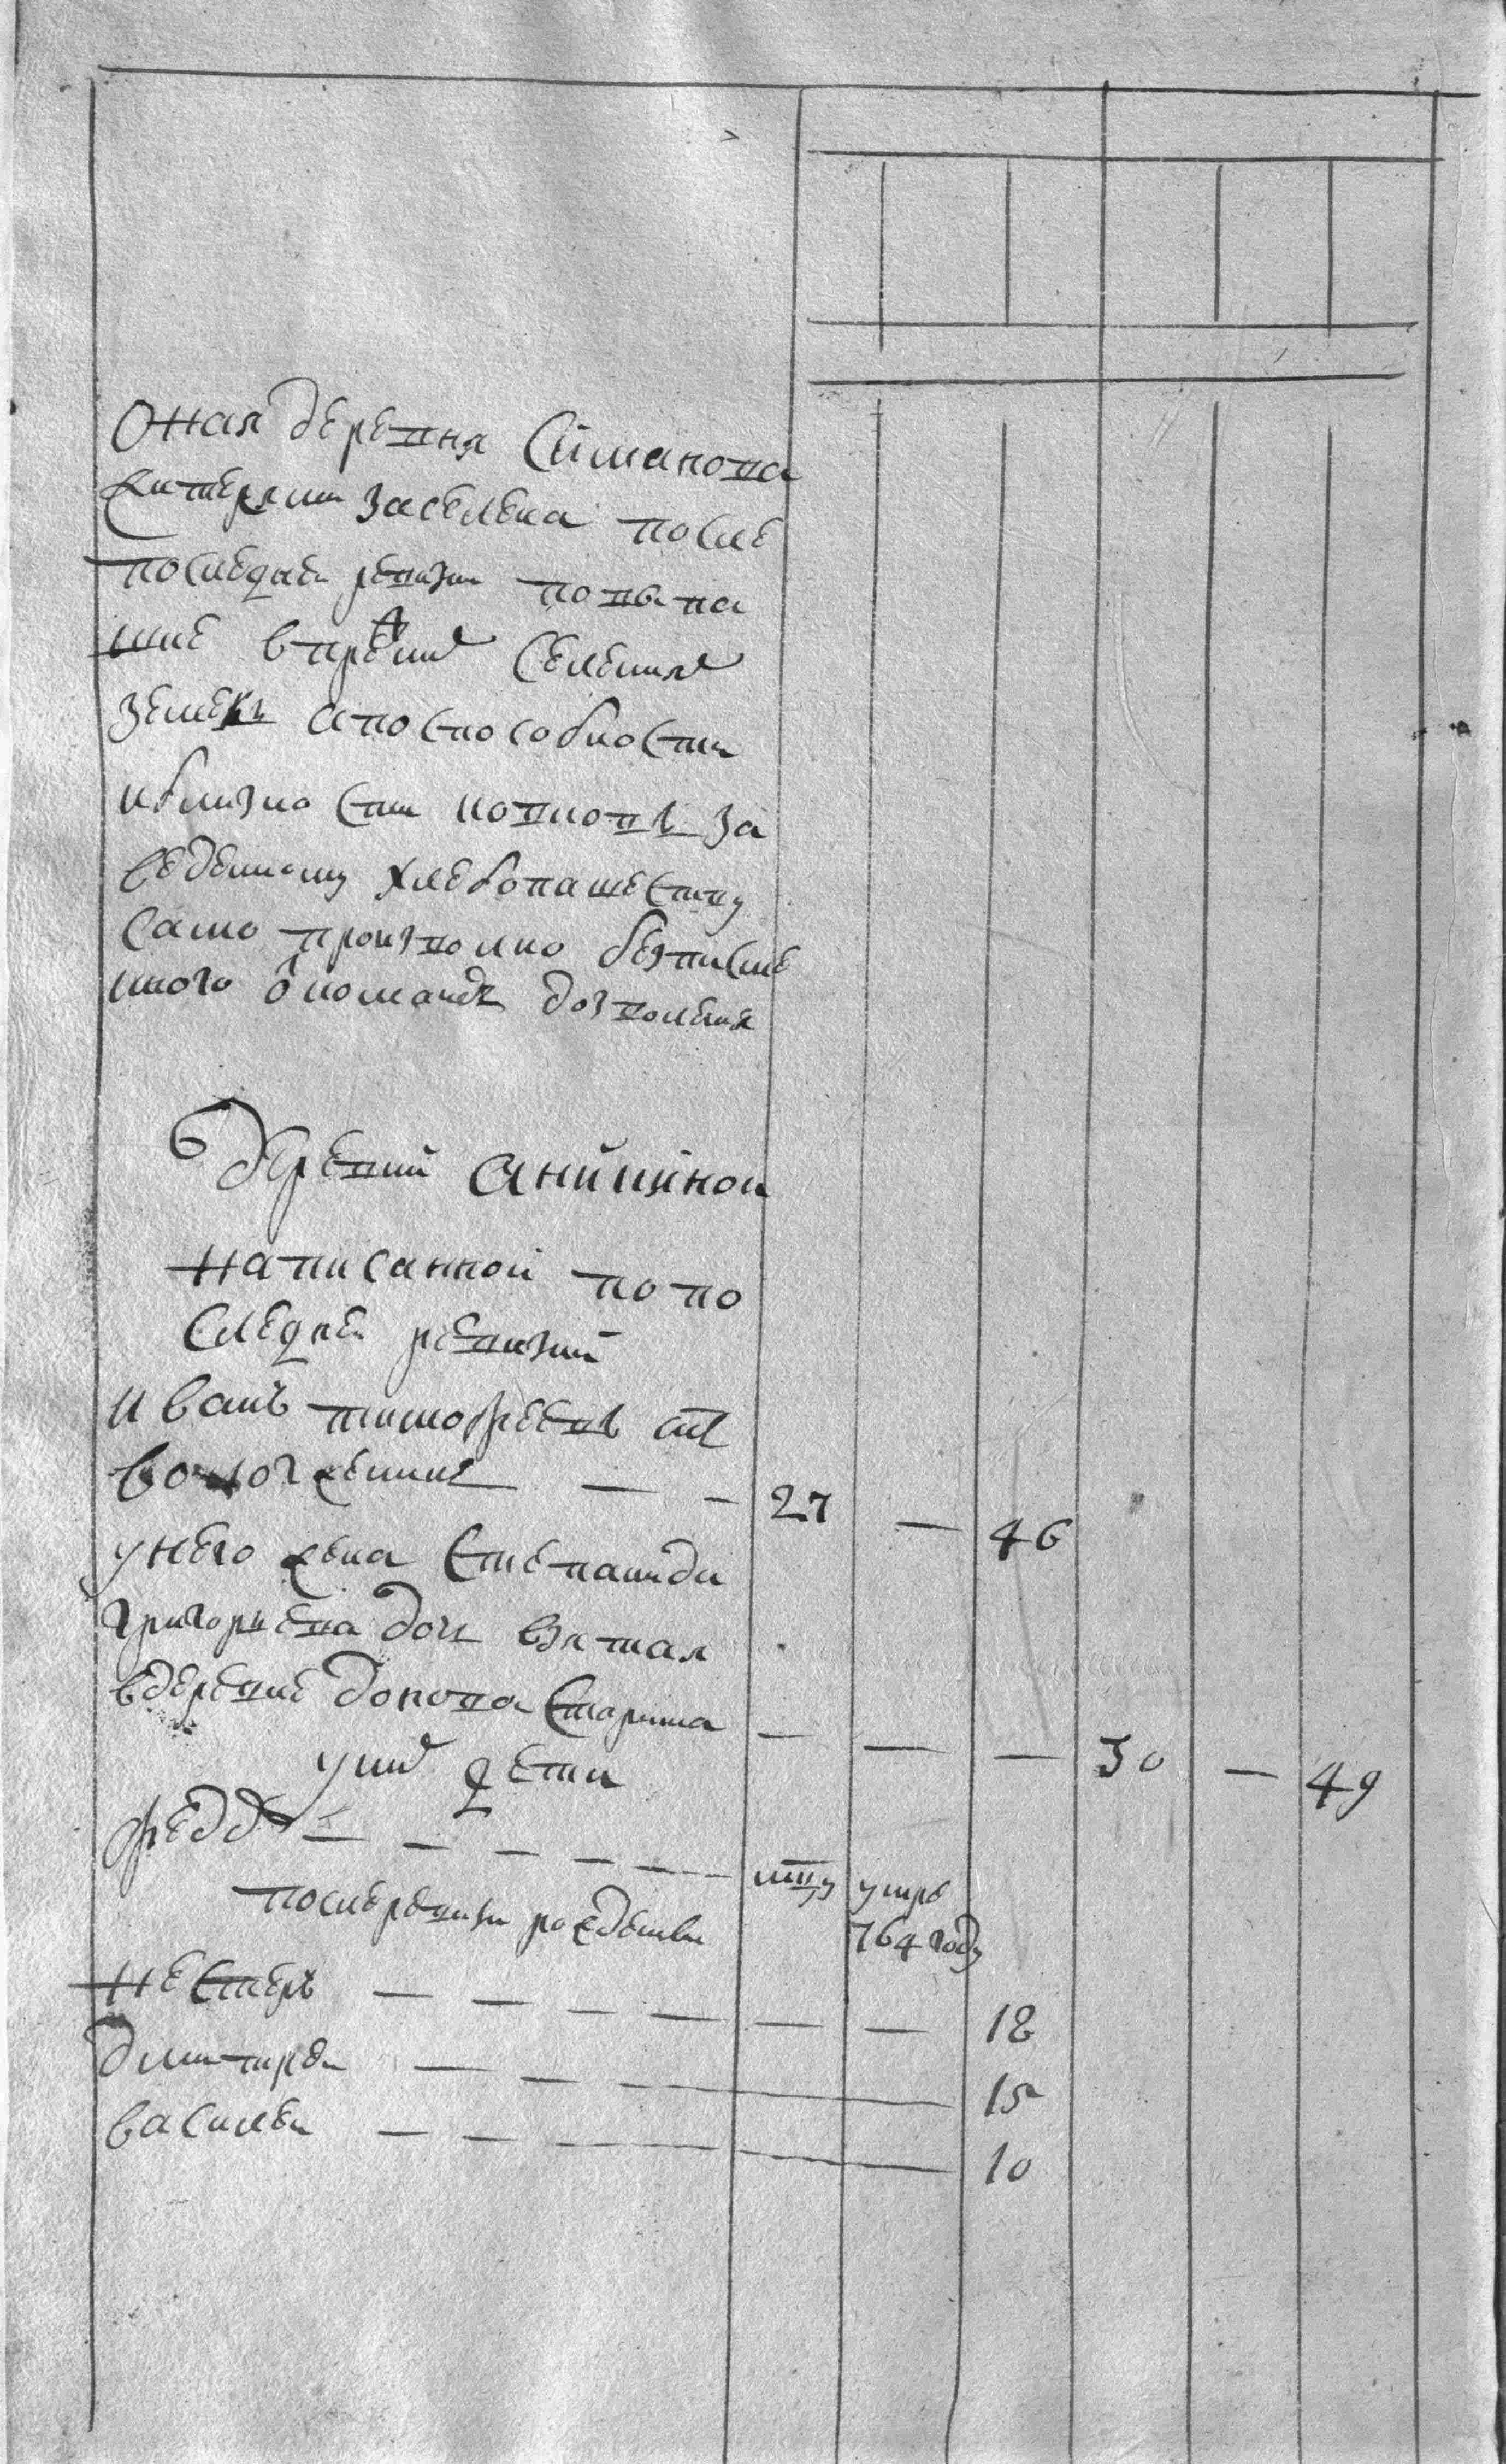 Оная деревня Симанова
жителми заселена после
последнеи ревизии повыпа
шке в прежних селениях
земель а поспособности
иблизности кпоновь за
веденному хлебопашеству
само произволно безписме
нного о команды дозволения
В деревни Анишиной
написанной по по
следнеи ревизии
Иванъ тимофеевъ
27 — 46
у него жена Степанида
григорьева дочь взятая
вдеревне старинная
— — — 30 — 49
у них дети
федоръ — — — — — умре
764 году
после ревизии рожденны
нестеръ — — — — — — 18
дмитреи — — — 15
василеи — — — 10